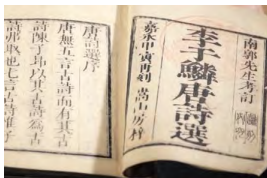 南郭先生考訂
李于鱗唐詩選
嘉永甲寅再刻 嵩山房梓
唐詩選序
唐無五言古詩而有其古
詩陳子昂以其古詩爲古
詩弗取也七言古詩